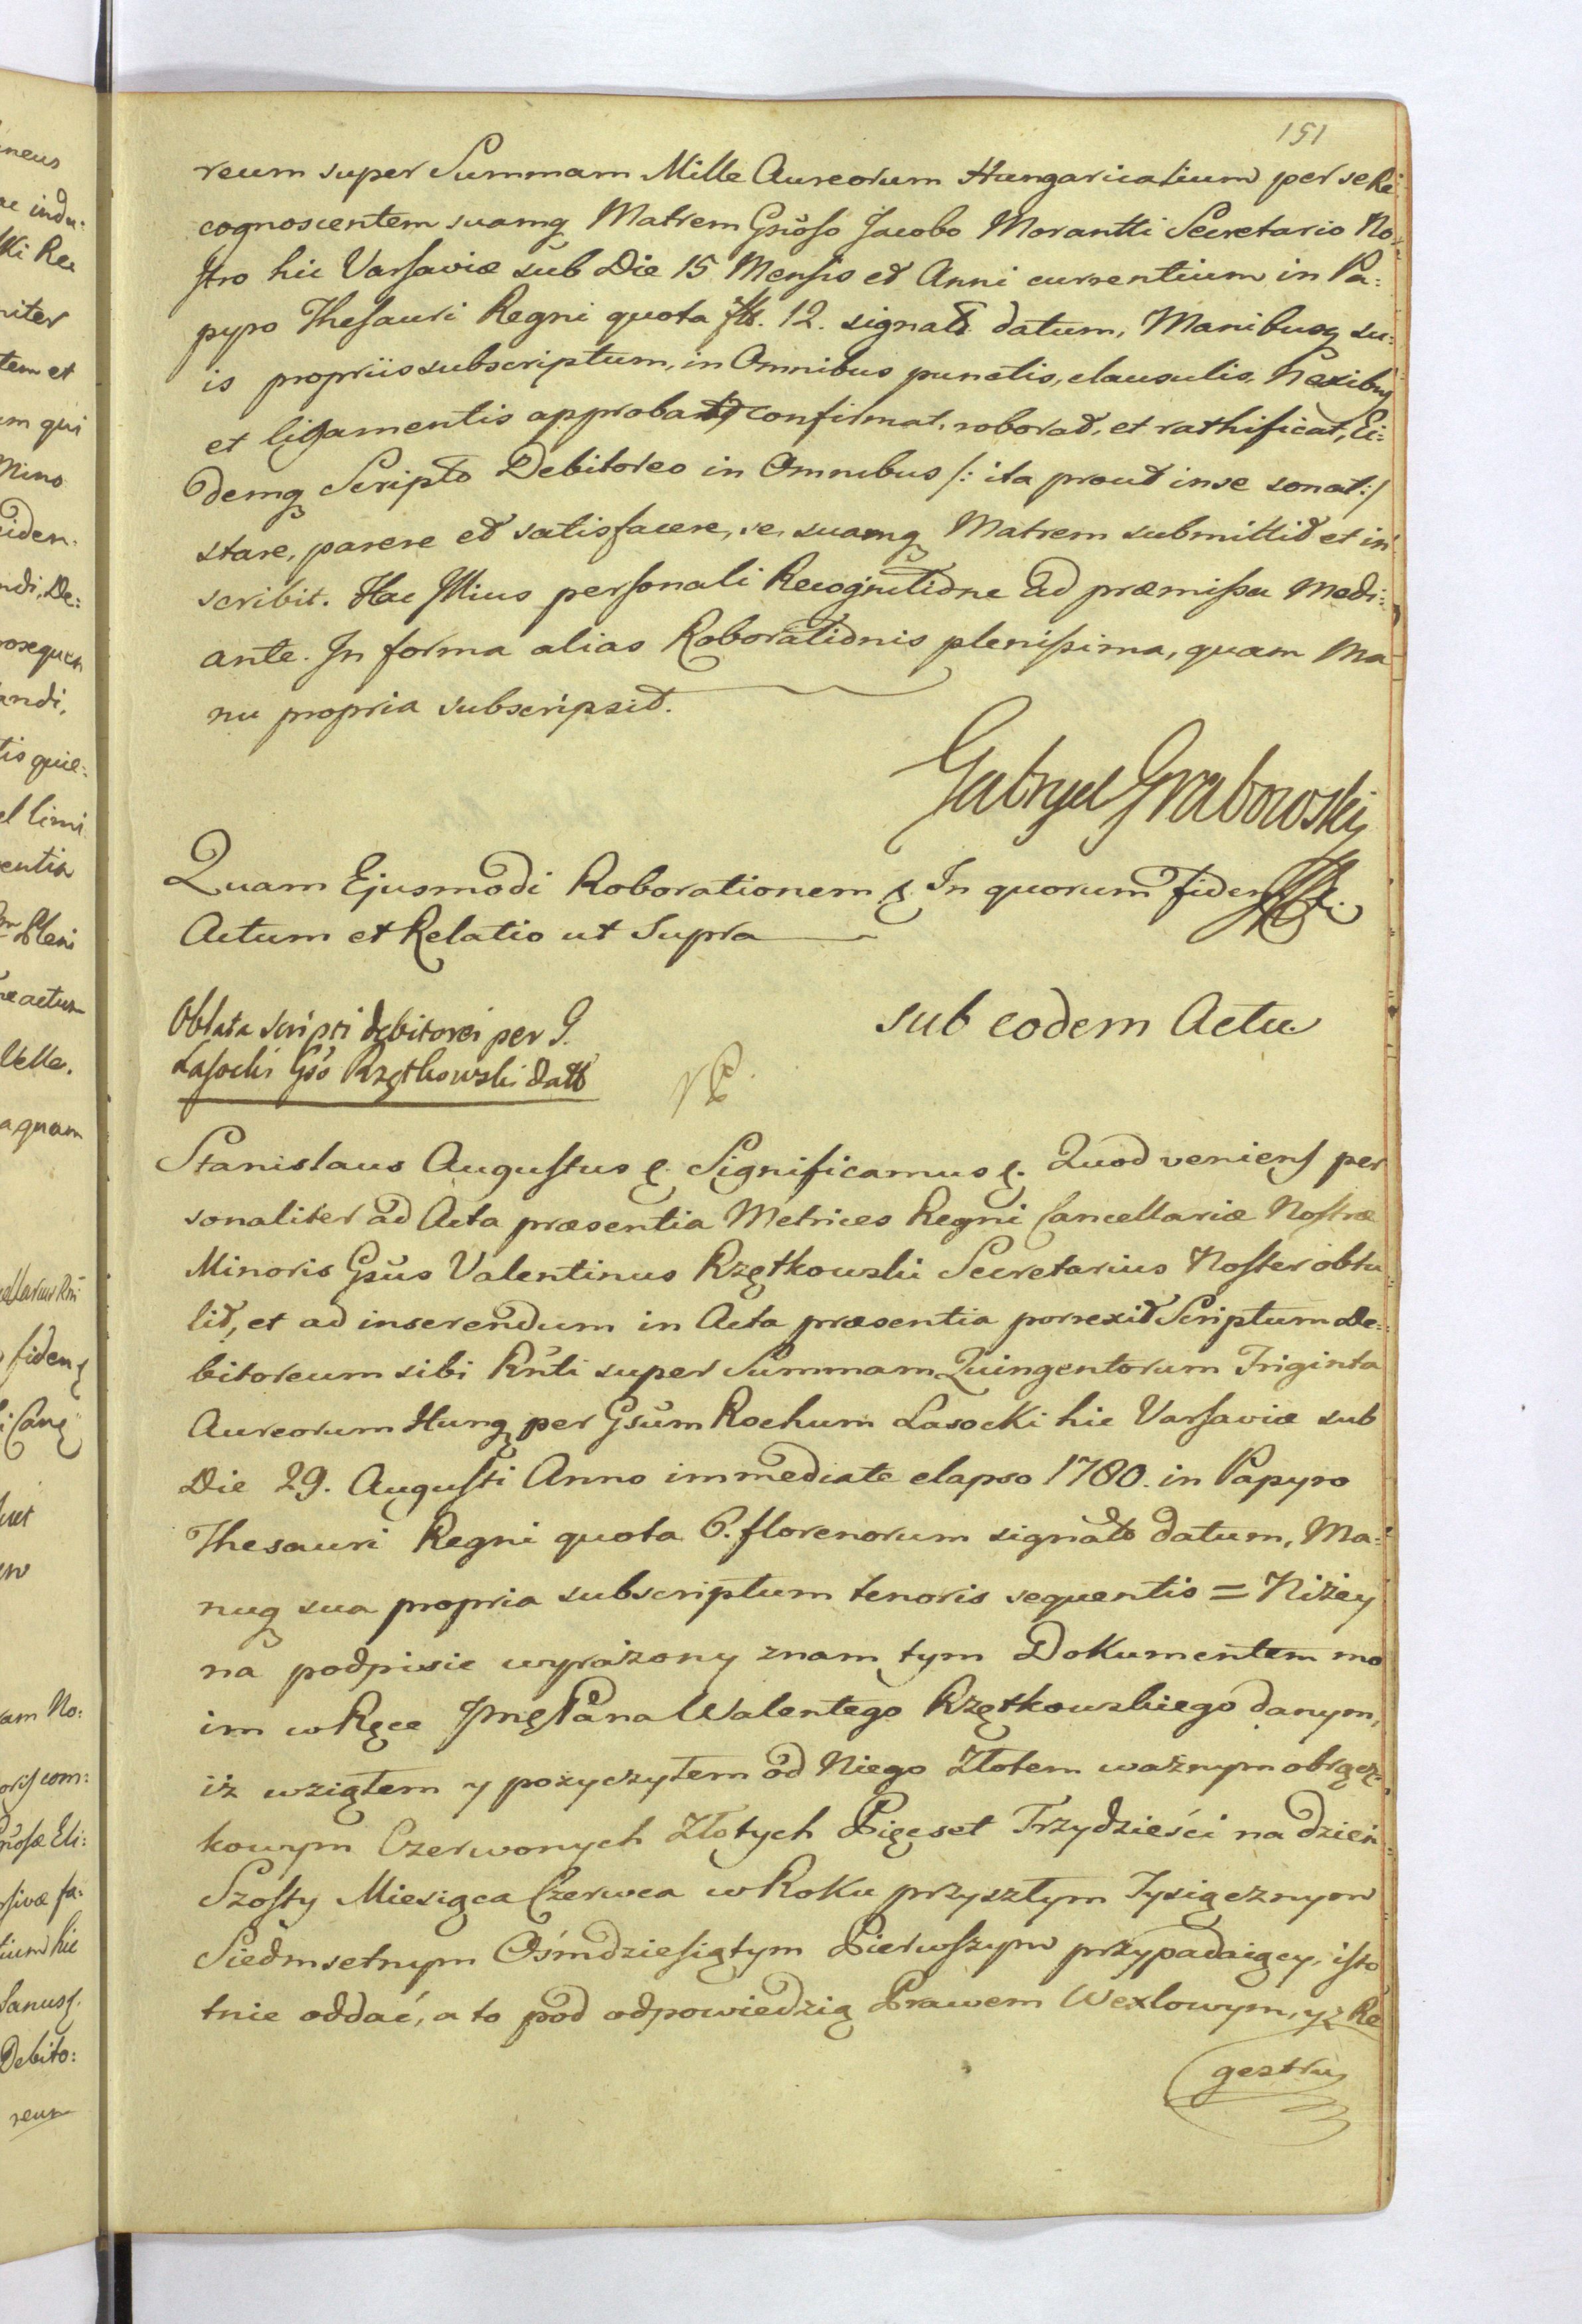 151
reum super Summam Mille Aureorum Hungaricalium per se Re
cognoscentem suamq Matrem Gnoso Jacobo Morantti Secretario No-
stro hic Varsaviæ sub Die 15 Mensis et Anni currentium in Pa:
pyro Thesauri Regni quota fls. 12. signato datum, Manibusq su:
is propriis subscriptum, in Omnibus punctis, clausulis, Nexibus
et ligamentis approbat, confirmat, roborat, et rathificat, Ei:
demq Scripto Debitoreo in Omnibus /: ita prout in se sonat :/
stare, parere et satisfacere, se, suamq Matrem submittit et in
scribit. Hac Illius personali Recognitione Ad præmissa Medi:
ante. In forma alias Roborationis plenissima, quam Ma
nu propria subscripsit.
Gabryel Grabowskij
Quam Ejusmodi Roborationem &. In quorum fidem &.
Actum et Relatio ut supra
Oblata scripti debitorei per G.
Lasocki Gso Rzętkowski datt
sub eodem Actu
Stanislaus Augustus &. Significamus &. Quod veniens per
sonaliter ad Acta præsentia Metrices Regni Cancellariæ Nostræ
Minoris Gsus Valentinus Rzętkowski Secretarius Noster obtu
lit, et ad inserendum in Acta præsentia porrexit Scriptum De:
bitoreum sibi Rnti super Summam Quingentorum Triginta
Aureorum Hung per Gsum Rochum Lasocki hic Varsaviæ sub
Die 29. Augusti Anno immediate elapso 1780. in Papyro
Thesauri Regni quota 6. florenorum signato datum, Ma:
nuq sua propria subscriptum tenoris sequentis = Niżey
na podpisie wyrażony znam tym Dokumentem mo
im w Ręce Jmę Pana Walentego Rzętkowskiego danym,
iż wziąłem y pożyczyłem od Niego Złotem ważnym obrącz:
kowym Czerwonych Złotych Pięcset Trzydzieści na dzień
Szosty Miesiąca Czerwca w Roku przyszłym Tysiącznym
Siedmsetnym Ośmdziesiątym Pierwszym przypadaiącey, isto
tnie oddać, a to pod odpowiedzią Prawem Wexlowym, y z Re
gestru